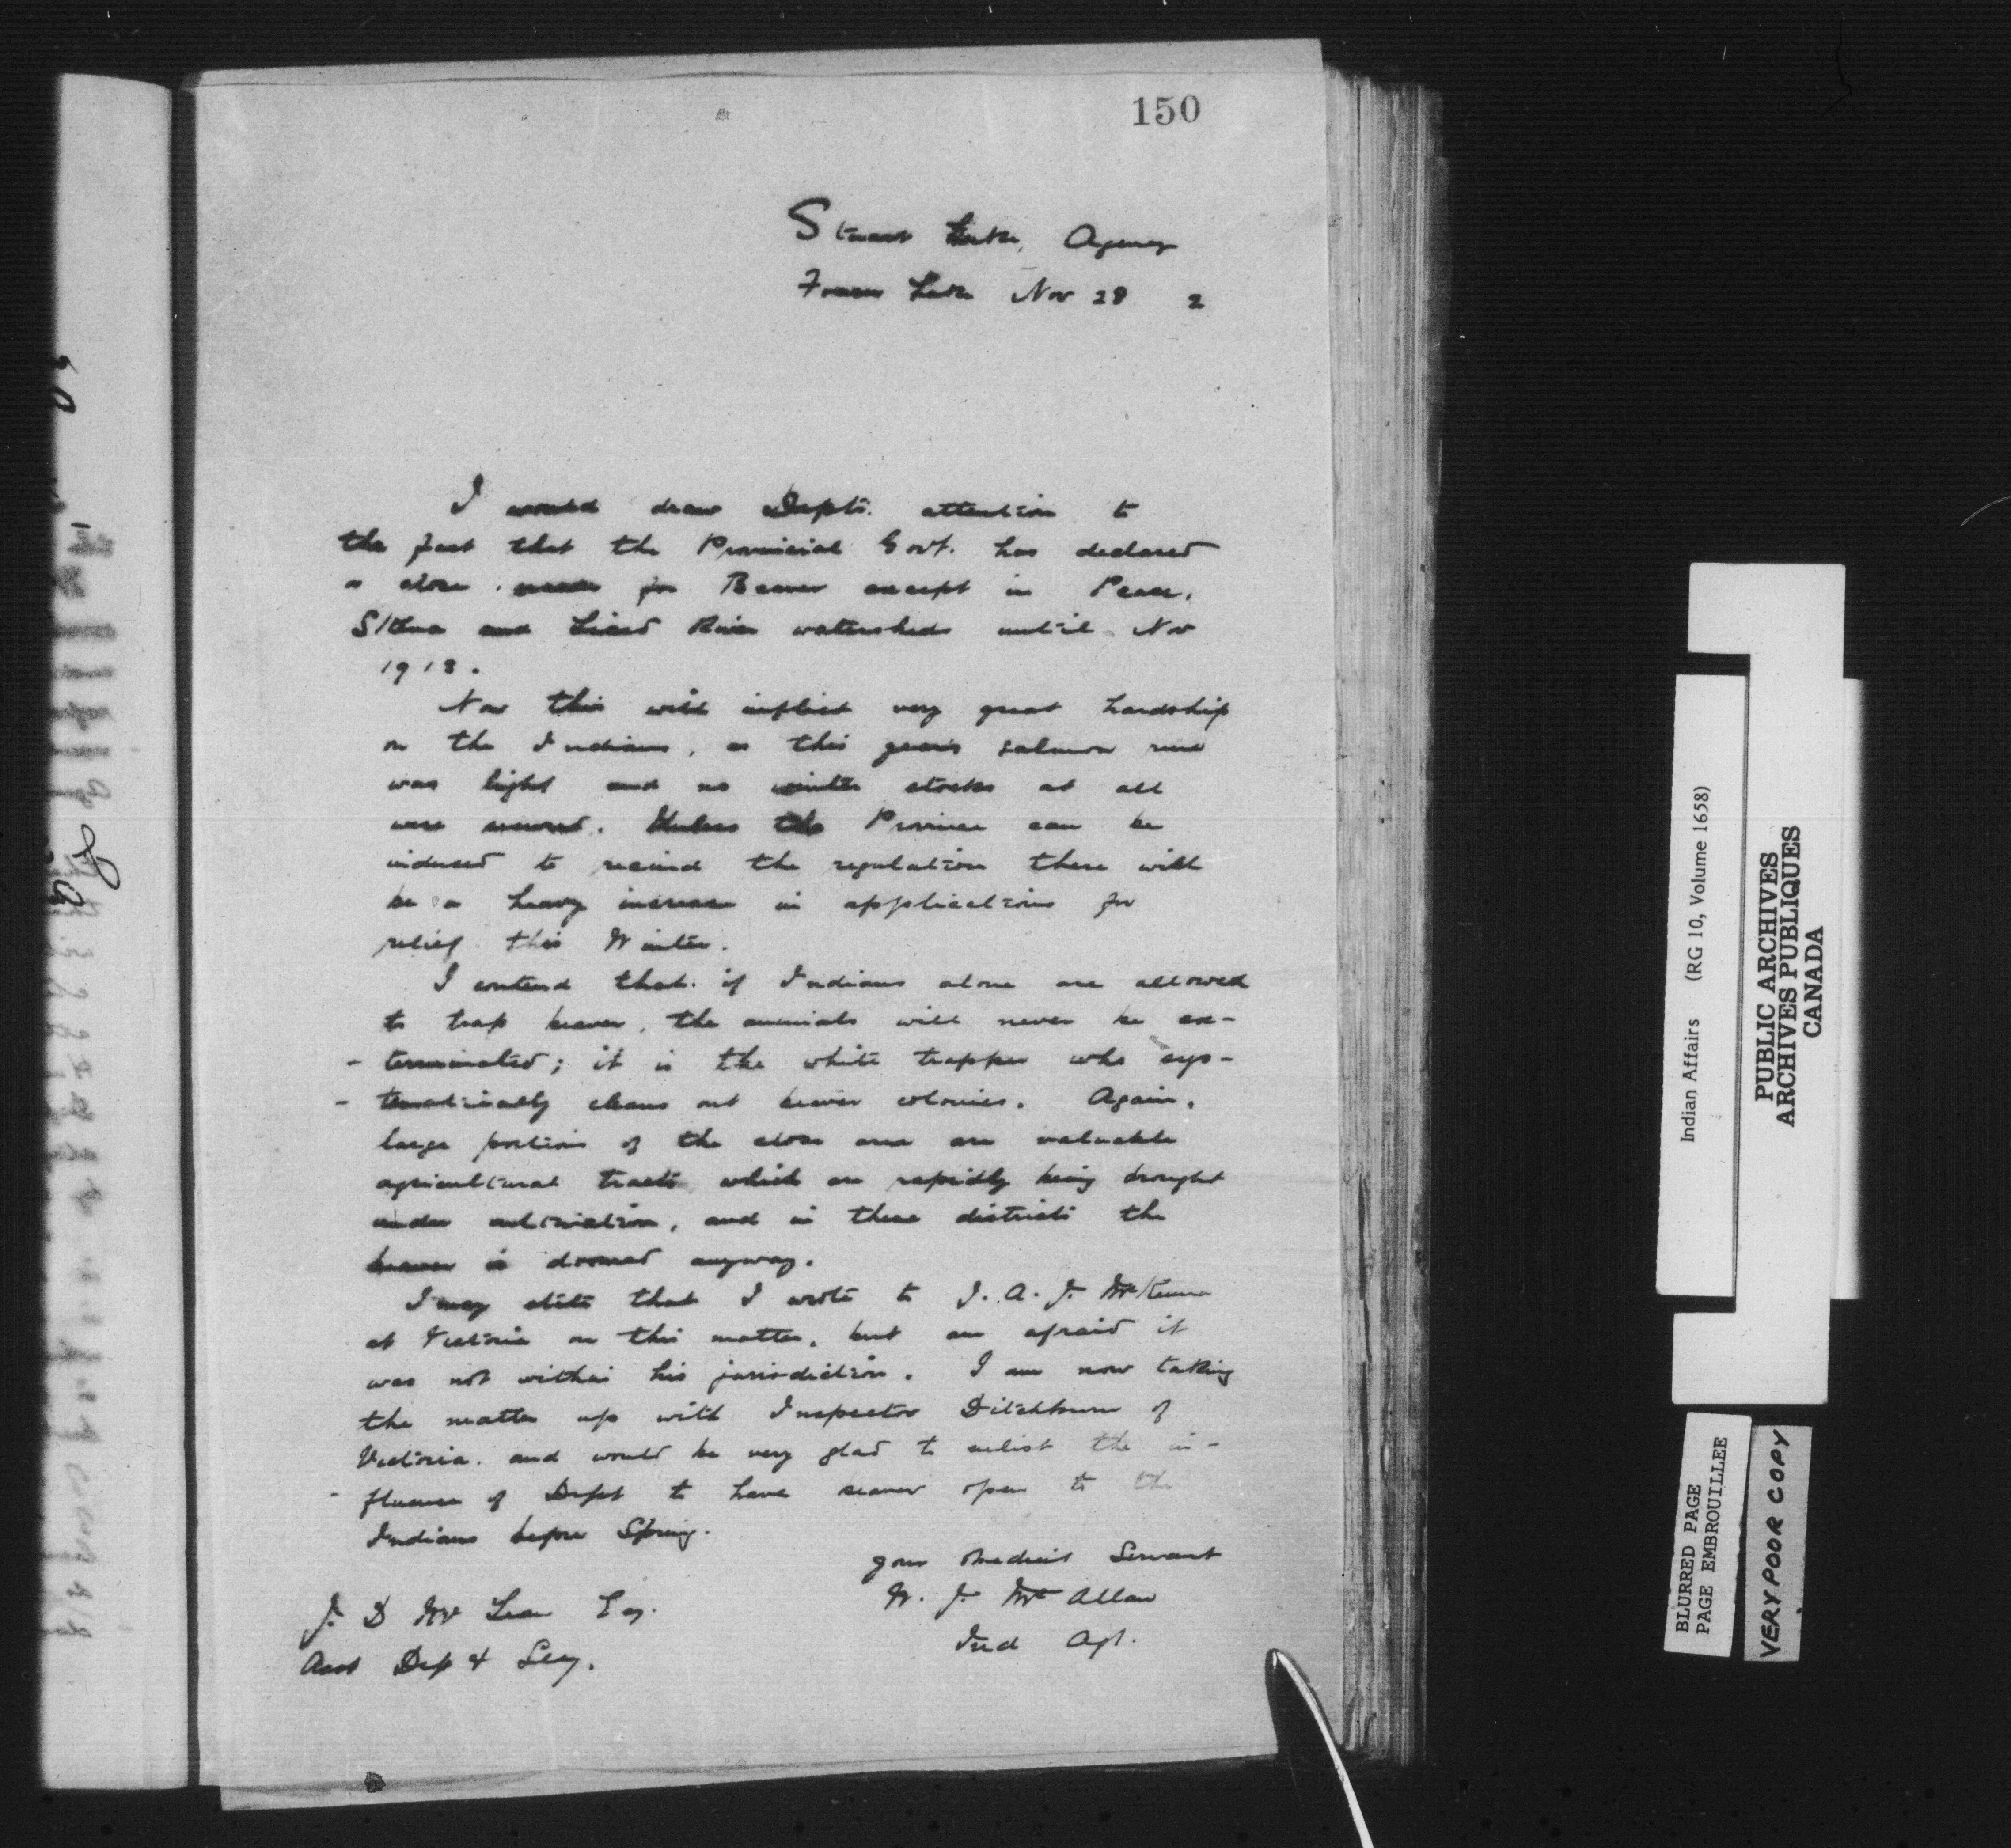 150
Stuart Lake, Agency
Fraser Lake Nov 28 2
I would draw Depts. attention to
the fact that the Provincial Govt. has declared
a close season for Beaver except in Peace,
Stikine and Liard River watersheds until Nov
1918.
Now this will inflict very great hardship
on the Indians, as this years salmon run
was light and no winter stocks at all
were secured. Unless the Province can be
induced to recind the regulation there will
be a heavy increase in applications for
relief this Winter.
I contend that if Indians alone are allowed
to trap beaver, the animals will never be ex-
- terminated; it is the white trapper who sys-
- tematically cleans out beaver colonies. Again,
large portions of the close area are valuable
agricultural tracts which are rapidly being brought
under cultivation, and in these districts the
beaver is doomed anyway.
I may state that I wrote to J. A. J. McKenna
at Victoria on this matter, but am afraid it
was not within his jurisdiction. I am now taking
the matter up with Inspector Ditchburn of
Victoria and would be very glad to enlist the in-
- fluence of Dept to have season open to the
Indians before Spring.
your obedient Servant
W. J. McAllan
Ind Agt.
J. D McLean Esq.
Asst Dep & Secy.
Indian Affairs (RG 10, Volume 1658)
PUBLIC ARCHIVES
ARCHIVES PUBLIQUES
CANADA
BLURRED PAGE
PAGE EMBROUILLEE
VERY POOR COPY